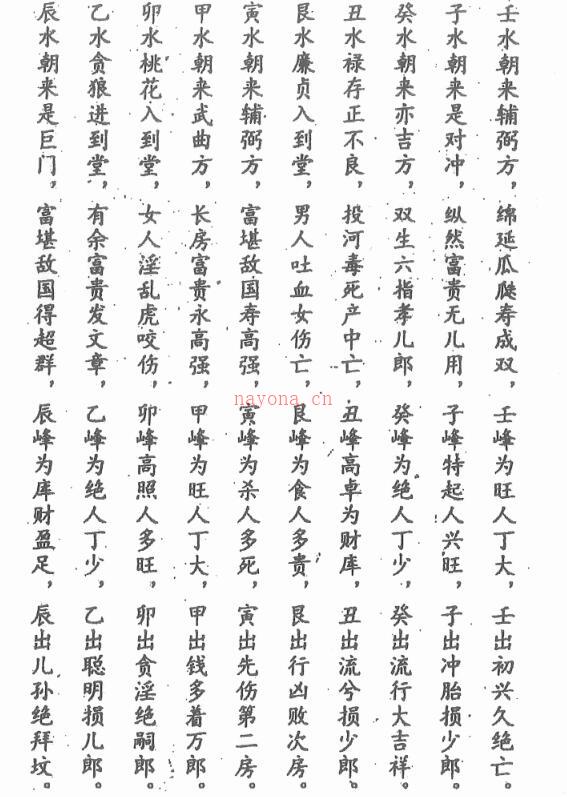 壬水朝来辅弼方，绵延瓜瓞寿成双，壬峰为旺人丁大，壬出初兴久绝亡。
子水朝来是对冲，纵然富贵无儿用，子峰特起人兴旺，子出冲胎损少郎。
癸水朝来亦吉方，双生六指孝儿郎，癸峰为绝人丁少，癸出流行大吉祥。
丑水禄存正不良，投河毒死产中亡，丑峰高卓为财库，丑出流兮损少郎。
艮水廉贞入到堂，男人吐血女伤亡，艮峰为食人多贵，艮出行凶败次房。
寅水朝来辅弼方，富堪敌国寿高强，寅峰为杀人多死，寅出先伤第二房。
甲水朝来武曲方，长房富贵永高强，甲峰为旺人丁大，甲出钱多着万郎。
卯水桃花入到堂，女人淫乱虎咬伤，卯峰高照人多旺，卯出贪淫绝嗣郎。
乙水贪狼进到堂，有余富贵发文章，乙峰为绝人丁少，乙出聪明损儿郎。
辰水朝来是巨门，富堪敌国得超群，辰峰为库财盈足，辰出儿孙绝拜坟。
nayona.cn